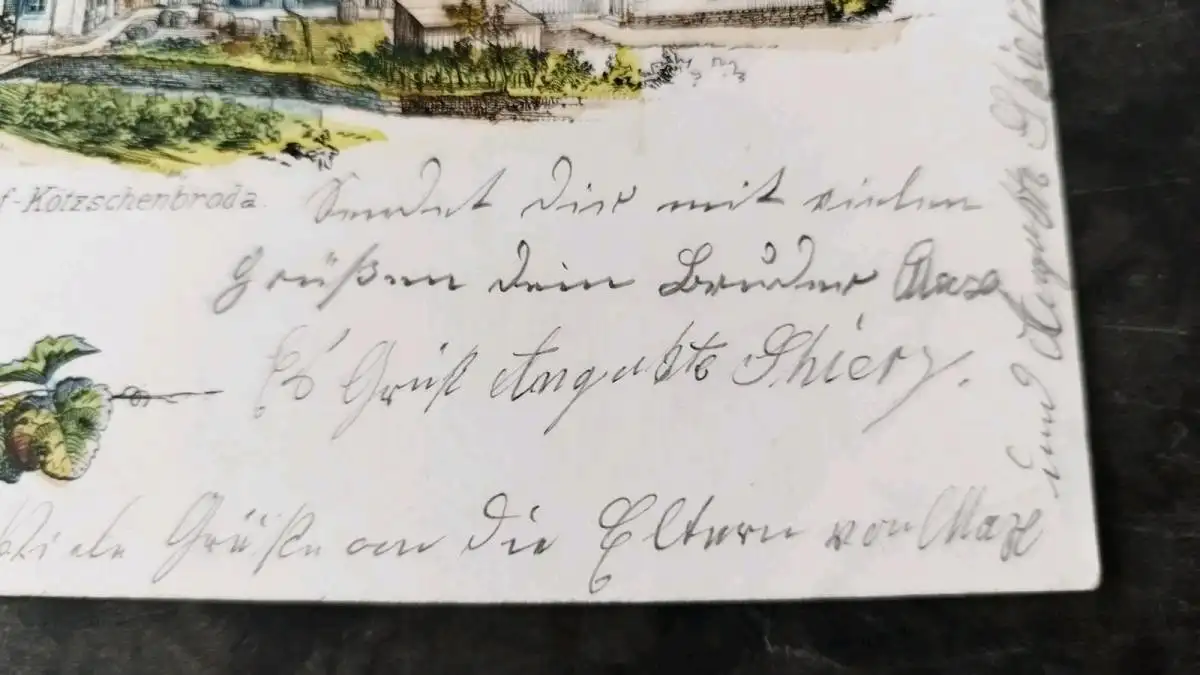 f-Kötzschenbroda.
Sendet Dir mit vielen
Grüßen dein Bruder Maxe
Es Grüßt Auguste Thierz.
Viele Grüße an die Eltern von Maxe
und Auguste